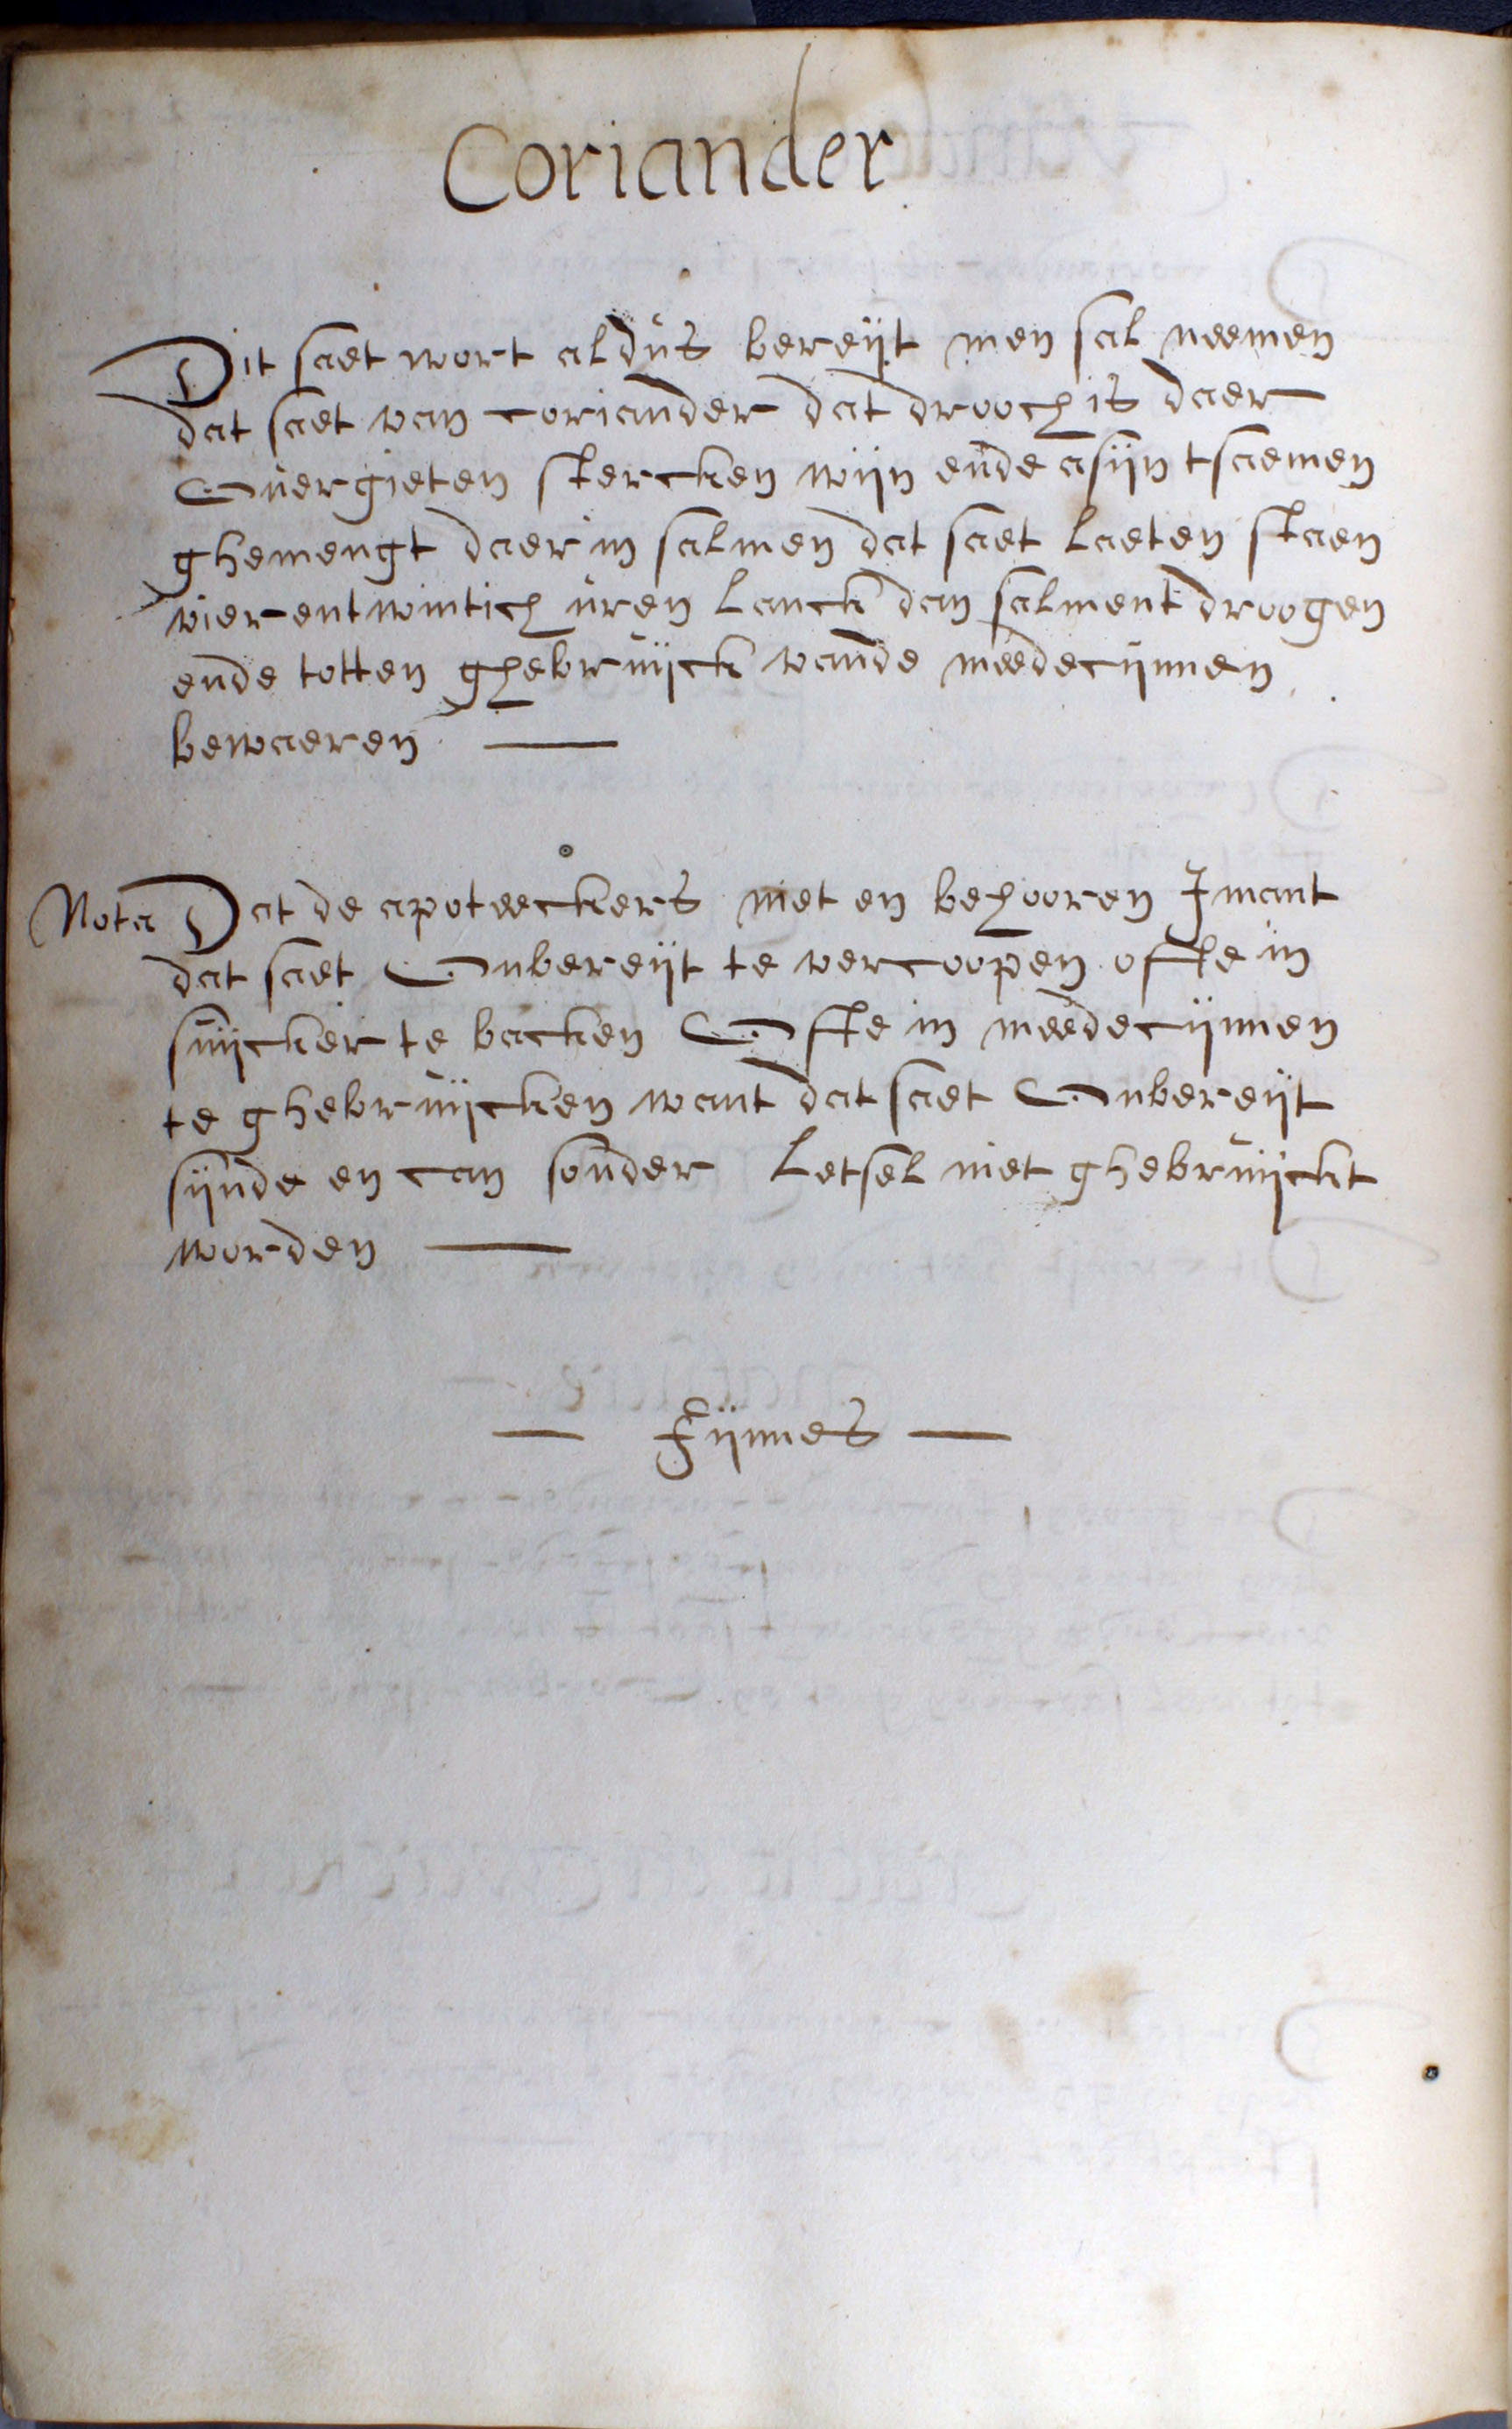 Coriander
Dit saet wort aldus bereijt men sal neemen
dat saet van coriander dat drooch is daer
Overgieten stercken wijn ende asijn tsaemen
ghemengt daer in salmen dat saet laeten staen
vierentwintich uren lanck dan salment droogen
ende totten ghebruijck vande meedecijnnen
bewaeren
Nota Dat de apoteeckers niet en behooren Imant
dat saet Onbereijt te vercoopen ofte in
suijcker te backen Ofte in meedecijnnen
te ghebruijcken want dat saet Onbereijt
sijnde en can sonder letsel niet ghebruijckt
worden
Fijnnes